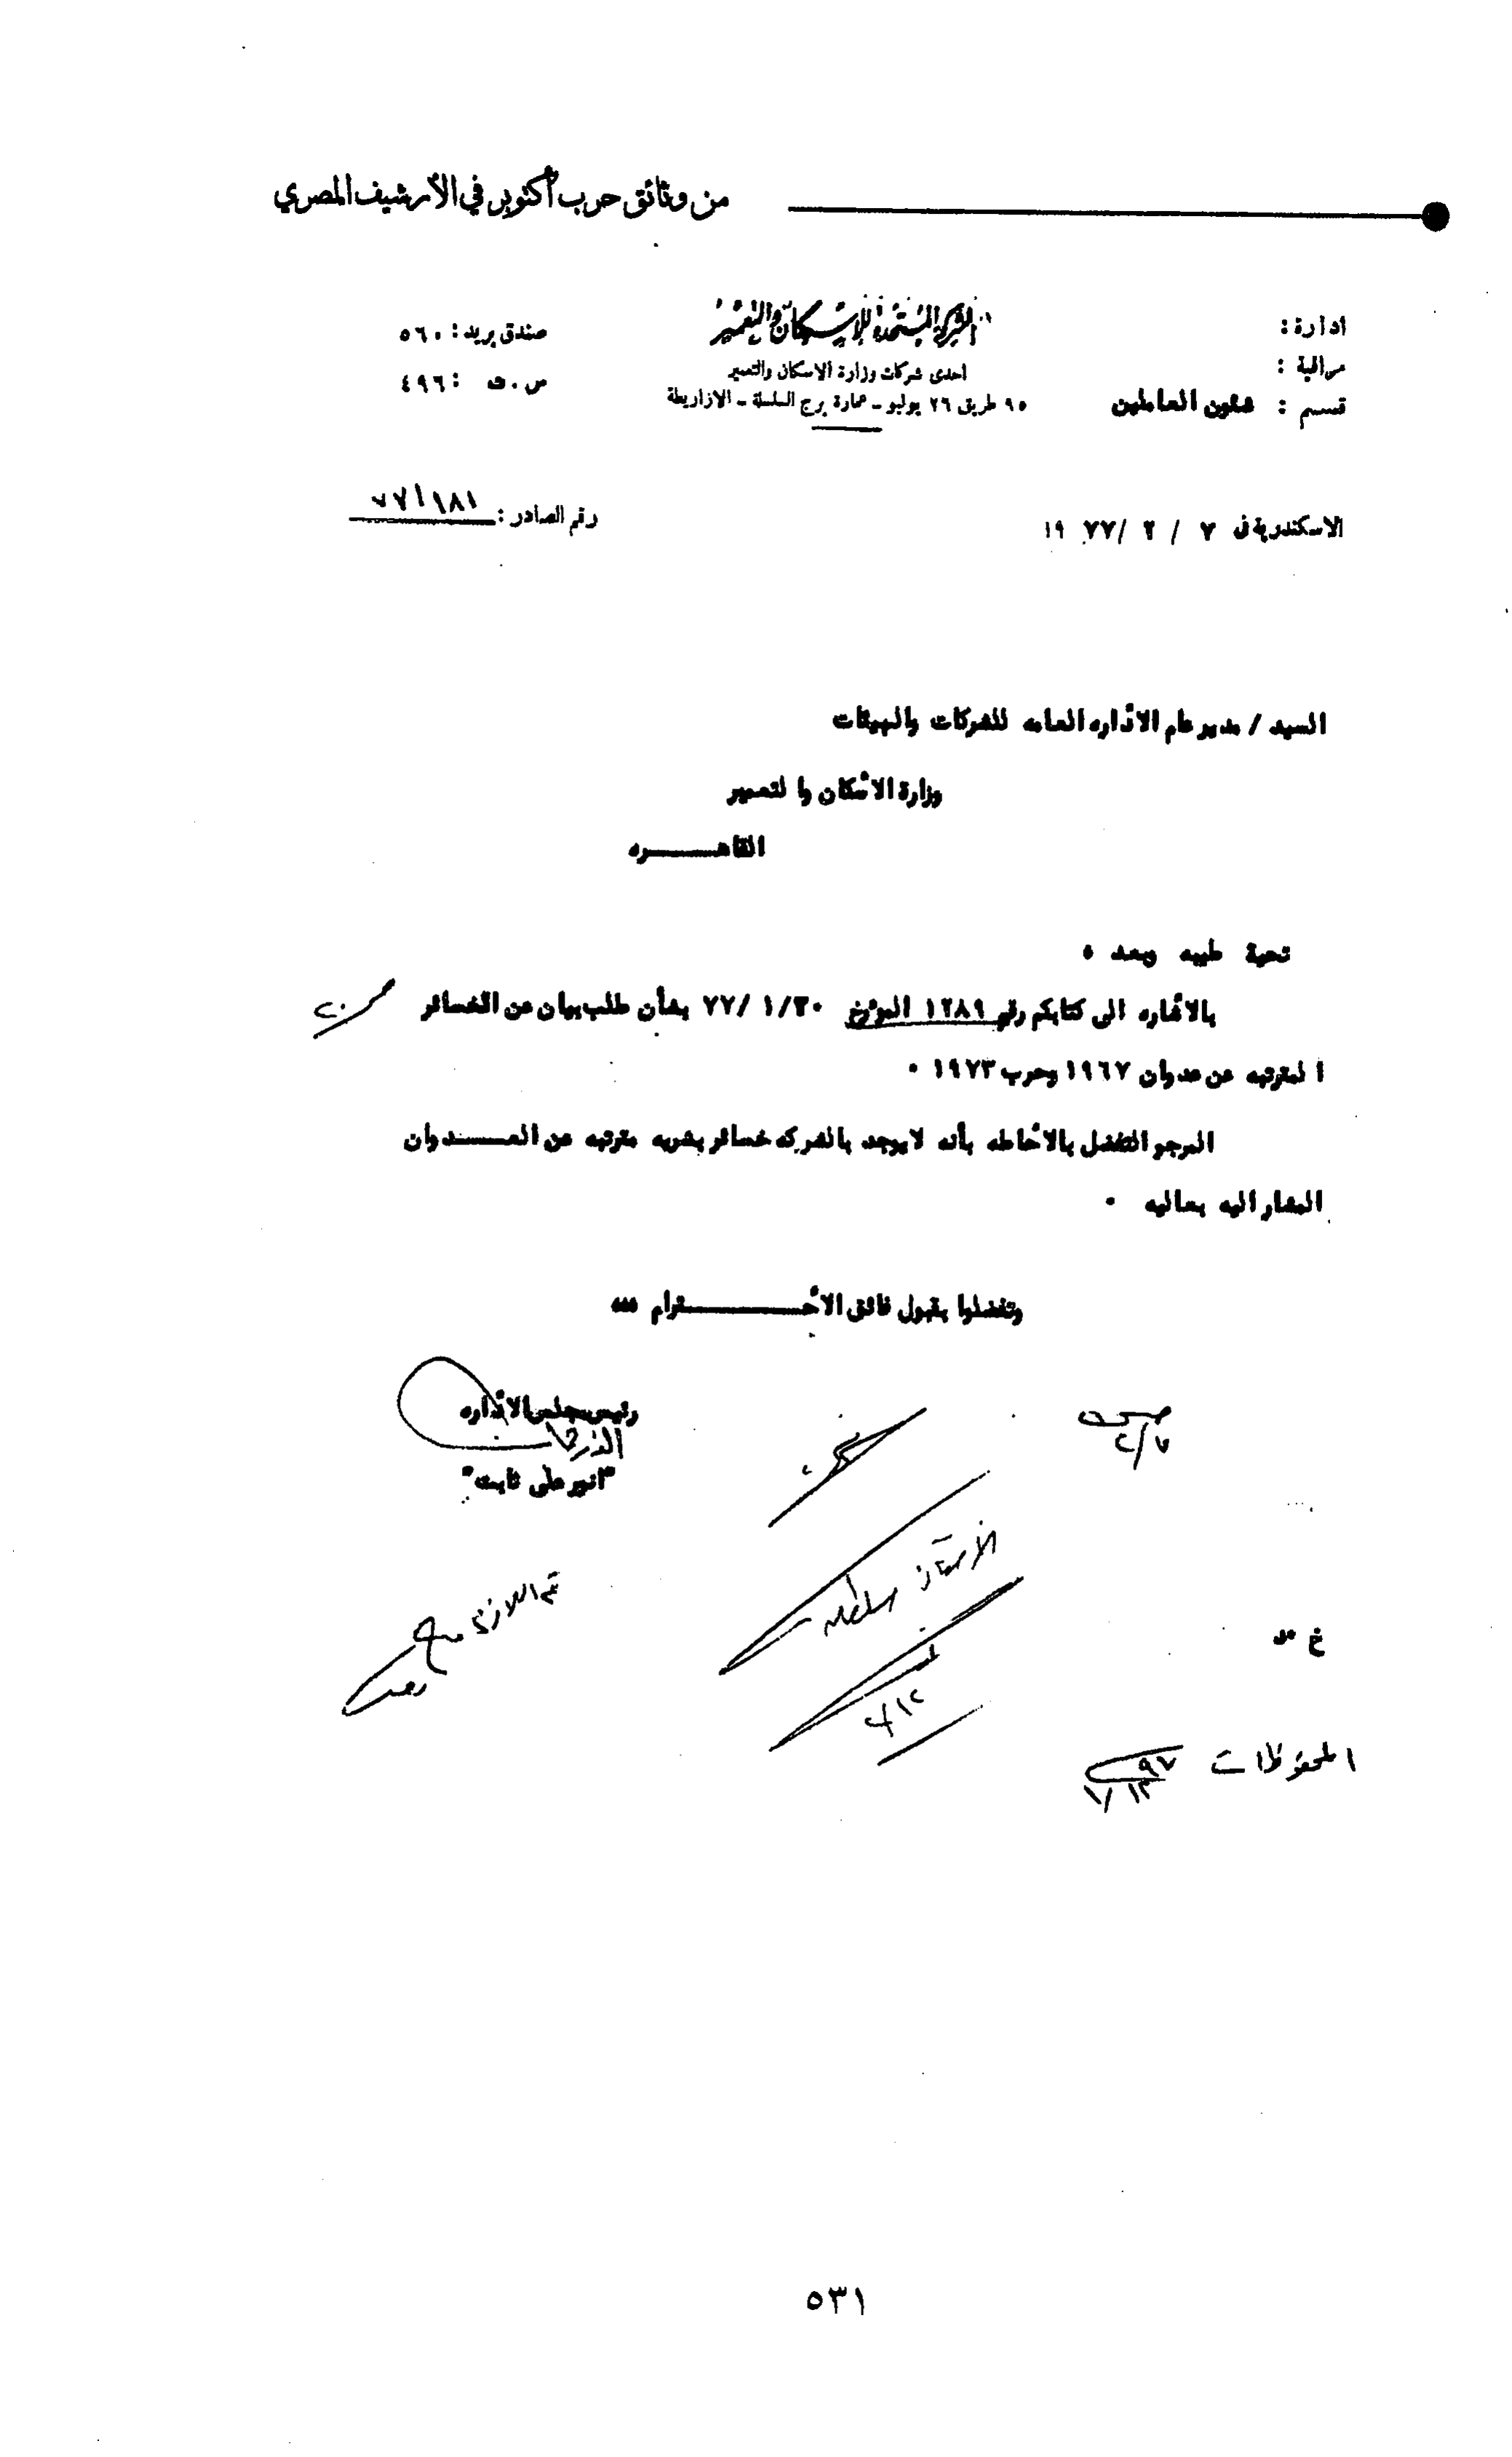 من وثائق حرب أكتوبر في الأرشيف المصري
ادارة :
مراقبة :
قسم : شئون العاملين
الشركة المتحدة للإسكان والتعمير
احدى شركات وزارة الاسكان والتعمير
٩٥ طريق ٢٦ يوليو ـ عمارة برج السلسلة ـ الازاريطة
صندق بريد : ٥٦٠
س . ت : ٤٩٦
الاسكندرية فى ٧ / ٢ / ٧٧ ١٩
رقم الصادر :
السيد / مدير عام الأداره العامه للشركات والهيئات
وزارة الأسكان والتعمير
القاهـــــره
تحية طيبه وبعد ،
بالأشاره الى كتابكم رقم ١٢٨٩ المؤرخ ٧٧/١/٣٠ بشأن طلب بيان عن الخسائر
المترتبه عن عدوان ١٩٦٧ وحرب ١٩٧٣ ٠
المرجو التفضل بالأحاطه بأنه لا يوجد بالشركه خسائر بشريه مترتبه عن العـــــدوان
المشار اليه بعاليه ٠
وتفضلوا بقبول فائق الأحـــــــــترام ،،،
رئيس مجلس الأداره
"انور على ثابت"
تم اللازم
الأستاذ
المحفوظات
٥٣١